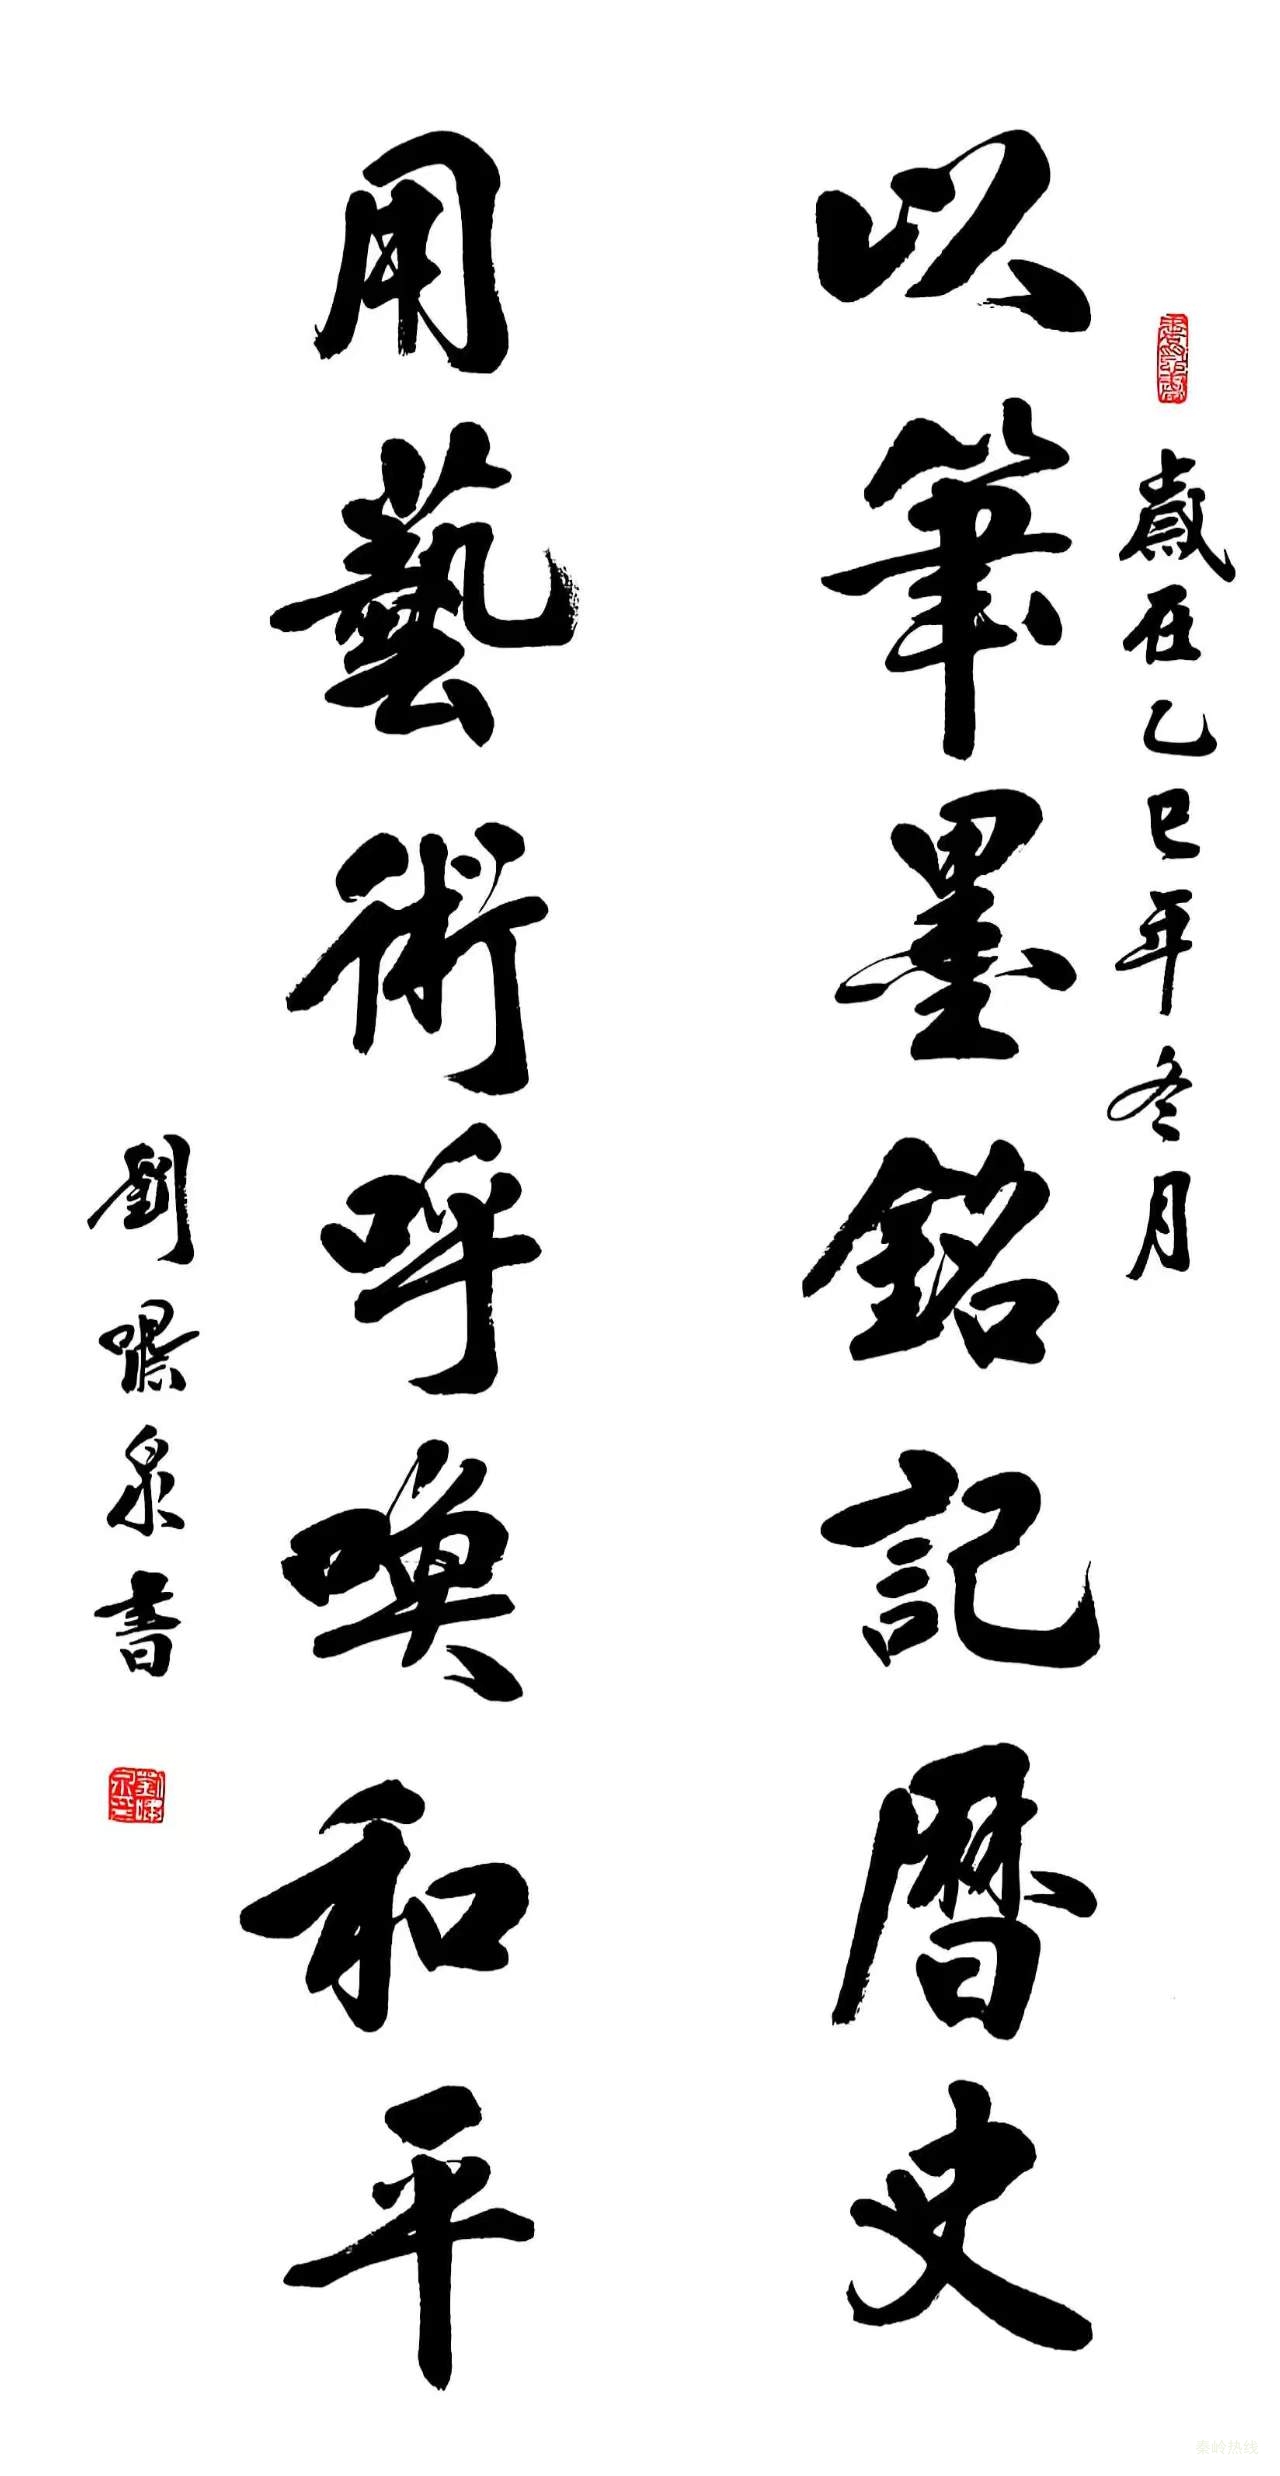 歲在乙巳年冬月
以筆墨銘記曆史
用藝術呼喚和平
劉泉書
秦岭热线